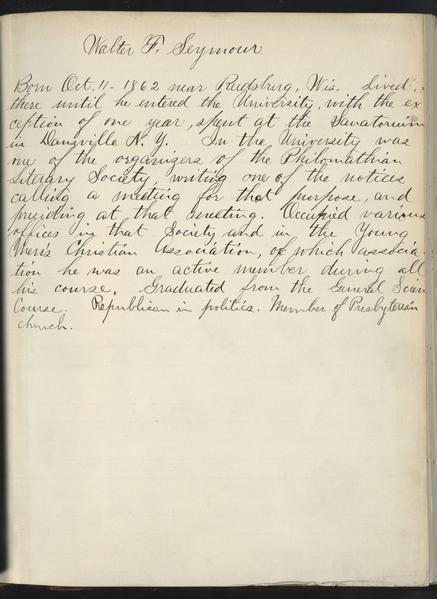 Walter F. Seymour.
Born Oct. 11 - 1862 near Reedsburg, Wis. Lived
there until he entered the University, with the ex
ception of one year, spent at the Sanatorium
in Dansville N. Y. In the University was
one of the organizers of the Philomathian
Literary Society writing one of the notices
calling a meeting for that purpose, and
presiding at that meeting. Occupied various
offices in that Society and in the Young
Men's Christian Association, of which associa-
tion he was an active member during all
his course. Graduated from the General Scien
Course. Republican in politics. Member of Presbyterian
church.